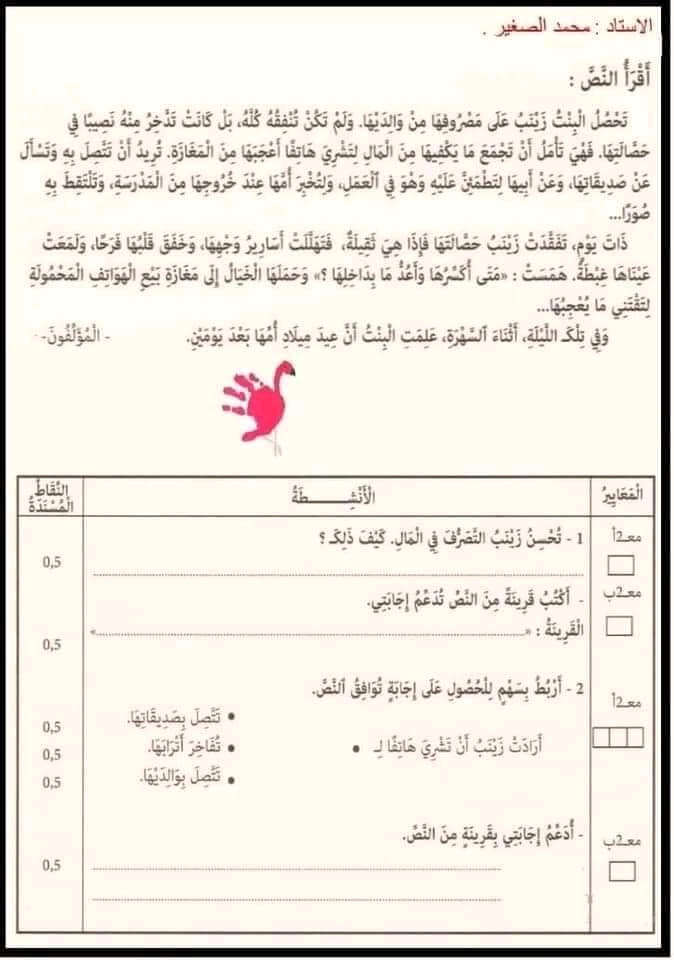 الاستاد : محمد الصغير .
أَقْرَأُ النَّصَّ :
تَحْصُلُ الْبِنْتُ زَيْنَبُ عَلَى مَصْرُوفِهَا مِنْ وَالِدَيْهَا. وَلَمْ تَكُنْ تُنْفِقُهُ كُلَّهُ، بَلْ كَانَتْ تَدَّخِرُ مِنْهُ نَصِيبًا فِي
حَصَّالَتِهَا. فَهْيَ تَأْمَلُ أَنْ تَجْمَعَ مَا يَكْفِيهَا مِنَ الْمَالِ لِتَشْرِيَ هَاتِفًا أَعْجَبَهَا مِنَ الْمَغَازَةِ. تُرِيدُ أَنْ تَتَّصِلَ بِهِ وَتَسْأَلَ
عَنْ صَدِيقَاتِهَا، وَعَنْ أَبِيهَا لِتَطْمَئِنَّ عَلَيْهِ وَهْوَ فِي ٱلْعَمَلِ، وَلِتُخْبِرَ أُمَّهَا عِنْدَ خُرُوجِهَا مِنَ الْمَدْرَسَةِ، وَتَلْتَقِطَ بِهِ
صُوَرًا...
ذَاتَ يَوْمٍ، تَفَقَّدَتْ زَيْنَبُ حَصَّالَتَهَا فَإِذَا هِيَ ثَقِيلَةٌ، فَتَهَلَّلَتْ أَسَارِيرُ وَجْهِهَا، وَخَفَقَ قَلْبُهَا فَرَحًا، وَلَمَعَتْ
عَيْنَاهَا غِبْطَةً. هَمَسَتْ : «مَتَى أُكَسِّرُهَا وَأَعُدُّ مَا بِدَاخِلِهَا ؟» وَحَمَلَهَا الْخَيَالُ إِلَى مَغَازَةِ بَيْعِ الْهَوَاتِفِ الْمَحْمُولَةِ
لِتَقْتَنِي مَا يُعْجِبُهَا...
وَفِي تِلْكَ اللَّيْلَةِ، أَثْنَاءَ ٱلسَّهْرَةِ، عَلِمَتِ الْبِنْتُ أَنَّ عِيدَ مِيلَادِ أُمِّهَا بَعْدَ يَوْمَيْنِ. - الْمُؤَلِّفُونَ-
الْمَعَايِيرُ
الْأَنْشِـــــطَةُ
النِّقَاطُ
الْمُسْنَدَةُ
معـ2أ
1 - تُحْسِنُ زَيْنَبُ التَّصَرُّفَ فِي الْمَالِ. كَيْفَ ذَلِكَ ؟
0,5
معـ2ب
- أَكْتُبُ قَرِينَةً مِنَ النَّصِّ تُدَعِّمُ إِجَابَتِي.
الْقَرِينَةُ : «...............»
0,5
معـ2أ
2 - أَرْبُطُ بِسَهْمٍ لِلْحُصُولِ عَلَى إِجَابَةٍ تُوَافِقُ ٱلنَّصَّ.
• تَتَّصِلَ بِصَدِيقَاتِهَا.
0,5
أَرَادَتْ زَيْنَبُ أَنْ تَشْرِيَ هَاتِفًا لِـ •
• تُفَاخِرَ أَتْرَابَهَا.
0,5
• تَتَّصِلَ بِوَالِدَيْهَا.
0,5
معـ2ب
- أُدَعِّمُ إِجَابَتِي بِقَرِينَةٍ مِنَ النَّصِّ.
0,5